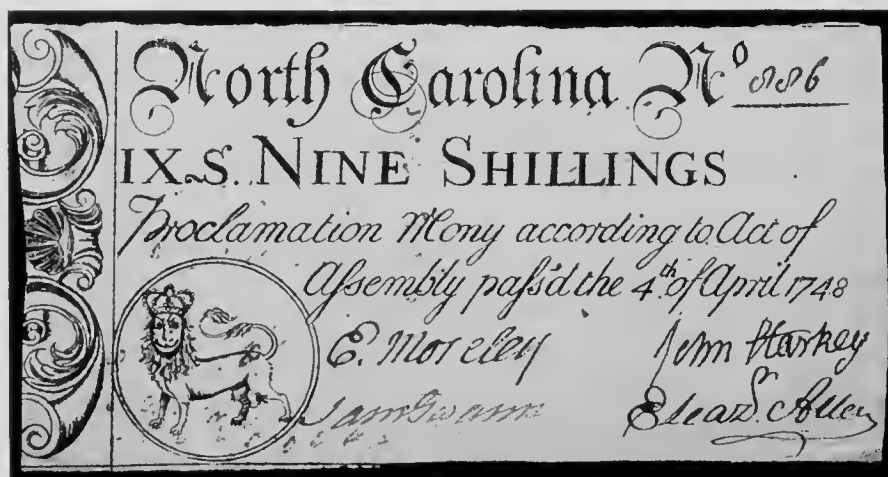 North Carolina Nº 886
IX.S. NINE SHILLINGS
Proclamation Mony according to Act of
Assembly pass'd the 4.th of April 1748
E. Moseley John Starkey
Sam Swann Eleazr. Allen